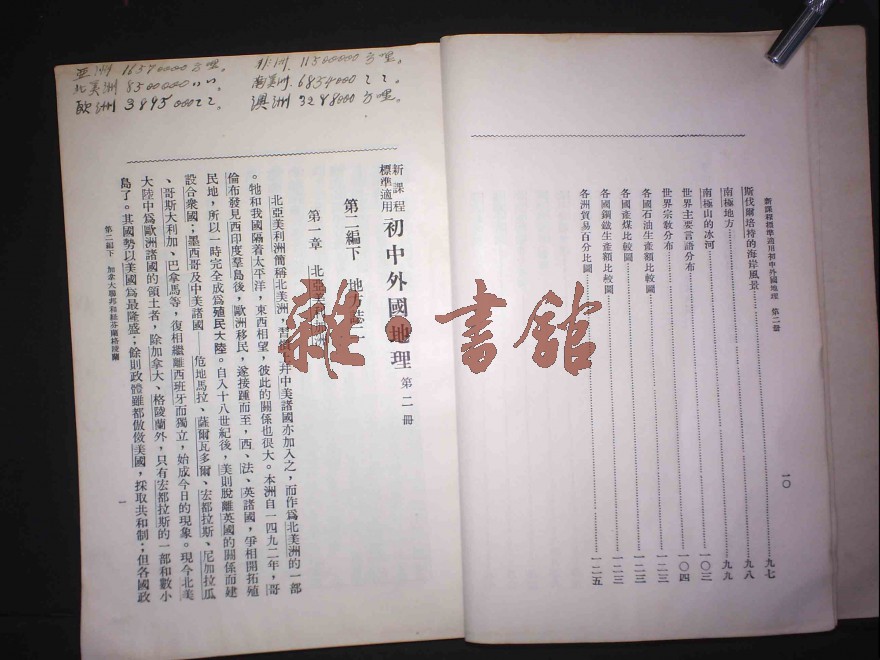 新課程標準適用初中外國地理 第二冊 一〇
斯伐爾培特的海岸風景……九七
南極地方……九八
南極山的冰河……九九
世界主要言語分布……一〇三
世界宗教分布……一〇四
各國石油生產額比較圖……一二三
各國產煤比較圖……一二三
各國鋼鐵生產額比較圖……一二三
各洲貿易百分比圖……一二五
亞洲 16570000方哩。 非洲 11500000方哩。
北美洲 8500000〃〃。 南美洲 6854000〻〻。
歐洲 3895000〻〻。 澳洲 3288000方哩。
新課程標準適用 初中外國地理 第二冊
第二編下 地方誌
第一章 北亞美利
北亞美利洲簡稱北美洲，習慣上并中美諸國亦加入之，而作爲北美洲的一部
。牠和我國隔着太平洋，東西相望，彼此的關係也很大。本洲自一四九二年，哥
倫布發見西印度羣島後，歐洲移民，遂接踵而至，西、法、英諸國，爭相開拓殖
民地，所以一時完全成爲殖民大陸。自入十八世紀後，美則脫離英國的關係而建
設合衆國；墨西哥及中美諸國——危地馬拉、薩爾瓦多爾、宏都拉斯、尼加拉瓜
、哥斯大利加、巴拿馬等，復相繼離西班牙而獨立，始成今日的現象。現今北美
大陸中爲歐洲諸國的領土者，除加拿大、格陵蘭外，只有宏都拉斯的一部和數小
島了。其國勢以美國爲最隆盛；餘則政體雖都倣傚美國，採取共和制；但各國政
第二編下 加拿大聯邦和紐芬蘭格陵蘭 一
雜·書館